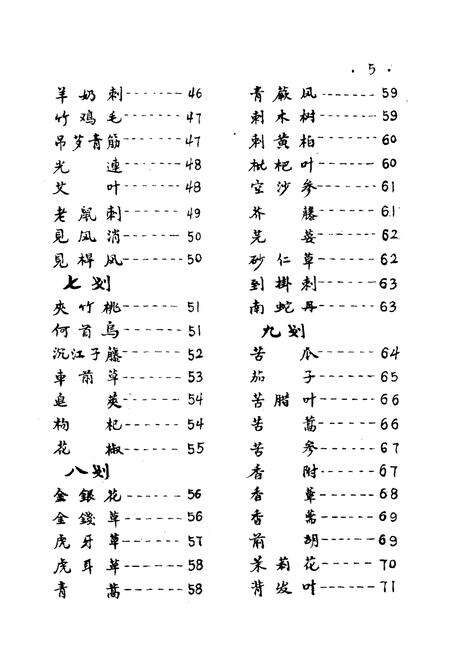 · 5 ·
羊奶刺-------46
竹鸡毛-------47
吊芽青筋------47
光連-------48
艾叶-------48
老鼠刺-------49
見风消-------50
見桿风-------50
七划
夾竹桃-------51
何首乌-------51
沉江子藤------52
車前草-------53
皂莢-------54
枸杞-------54
花椒-------55
八划
金銀花-------56
金錢草-------56
虎牙草-------57
虎耳草-------58
青蒿-------58
青蕨风-------59
刺木树-------59
刺黄柏-------60
枇杷叶-------60
空沙参-------61
芥藤-------61
芫荽-------62
砂仁草-------62
到掛刺-------63
南蛇丹-------63
九划
苦瓜-------64
茄子-------65
苦腊叶-------66
苦蒿-------66
苦参-------67
香附-------67
香草-------68
香蒿-------69
前胡-------69
茉莉花-------70
背发叶-------71